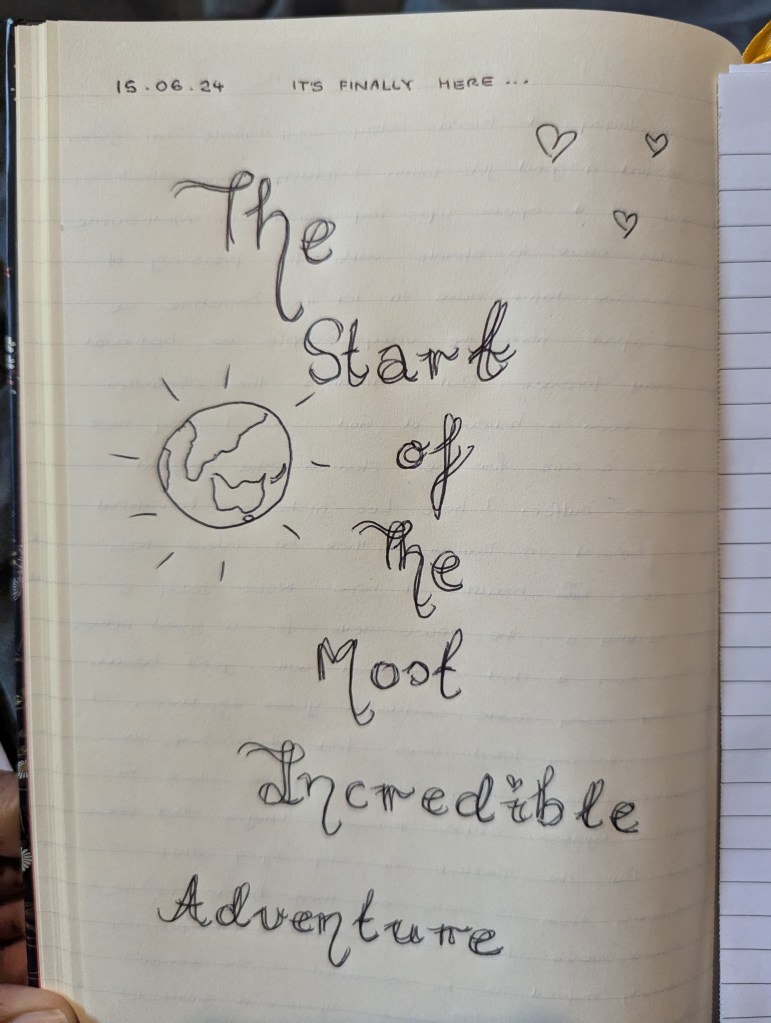 15.06.24 IT'S FINALLY HERE ...
The
Start
of
The
Most
Incredible
Adventure